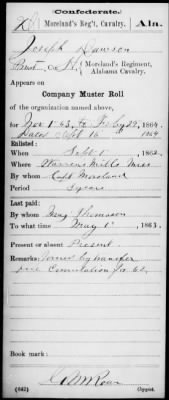 Confederate.
D Moreland's Reg't, Cavalry. Ala.
Joseph Dawson
Moreland's Regiment,
Alabama Cavalry.
Appears on
Company Muster Roll
of the organization named above,
for Nov 1 '63, to Feby 29, 1864.
Dated Sept 15 1864
Enlisted:
When Sept 1, 1862
Where Warrens Mills Miss
By whom Capt Moreland
Period 3 years
Last paid:
By whom Maj Thomason
To what time May 1, 1863.
Present or absent Present
Remarks: Joined by transfer
due Comutation for 62
Book mark:
(642) Copyist.